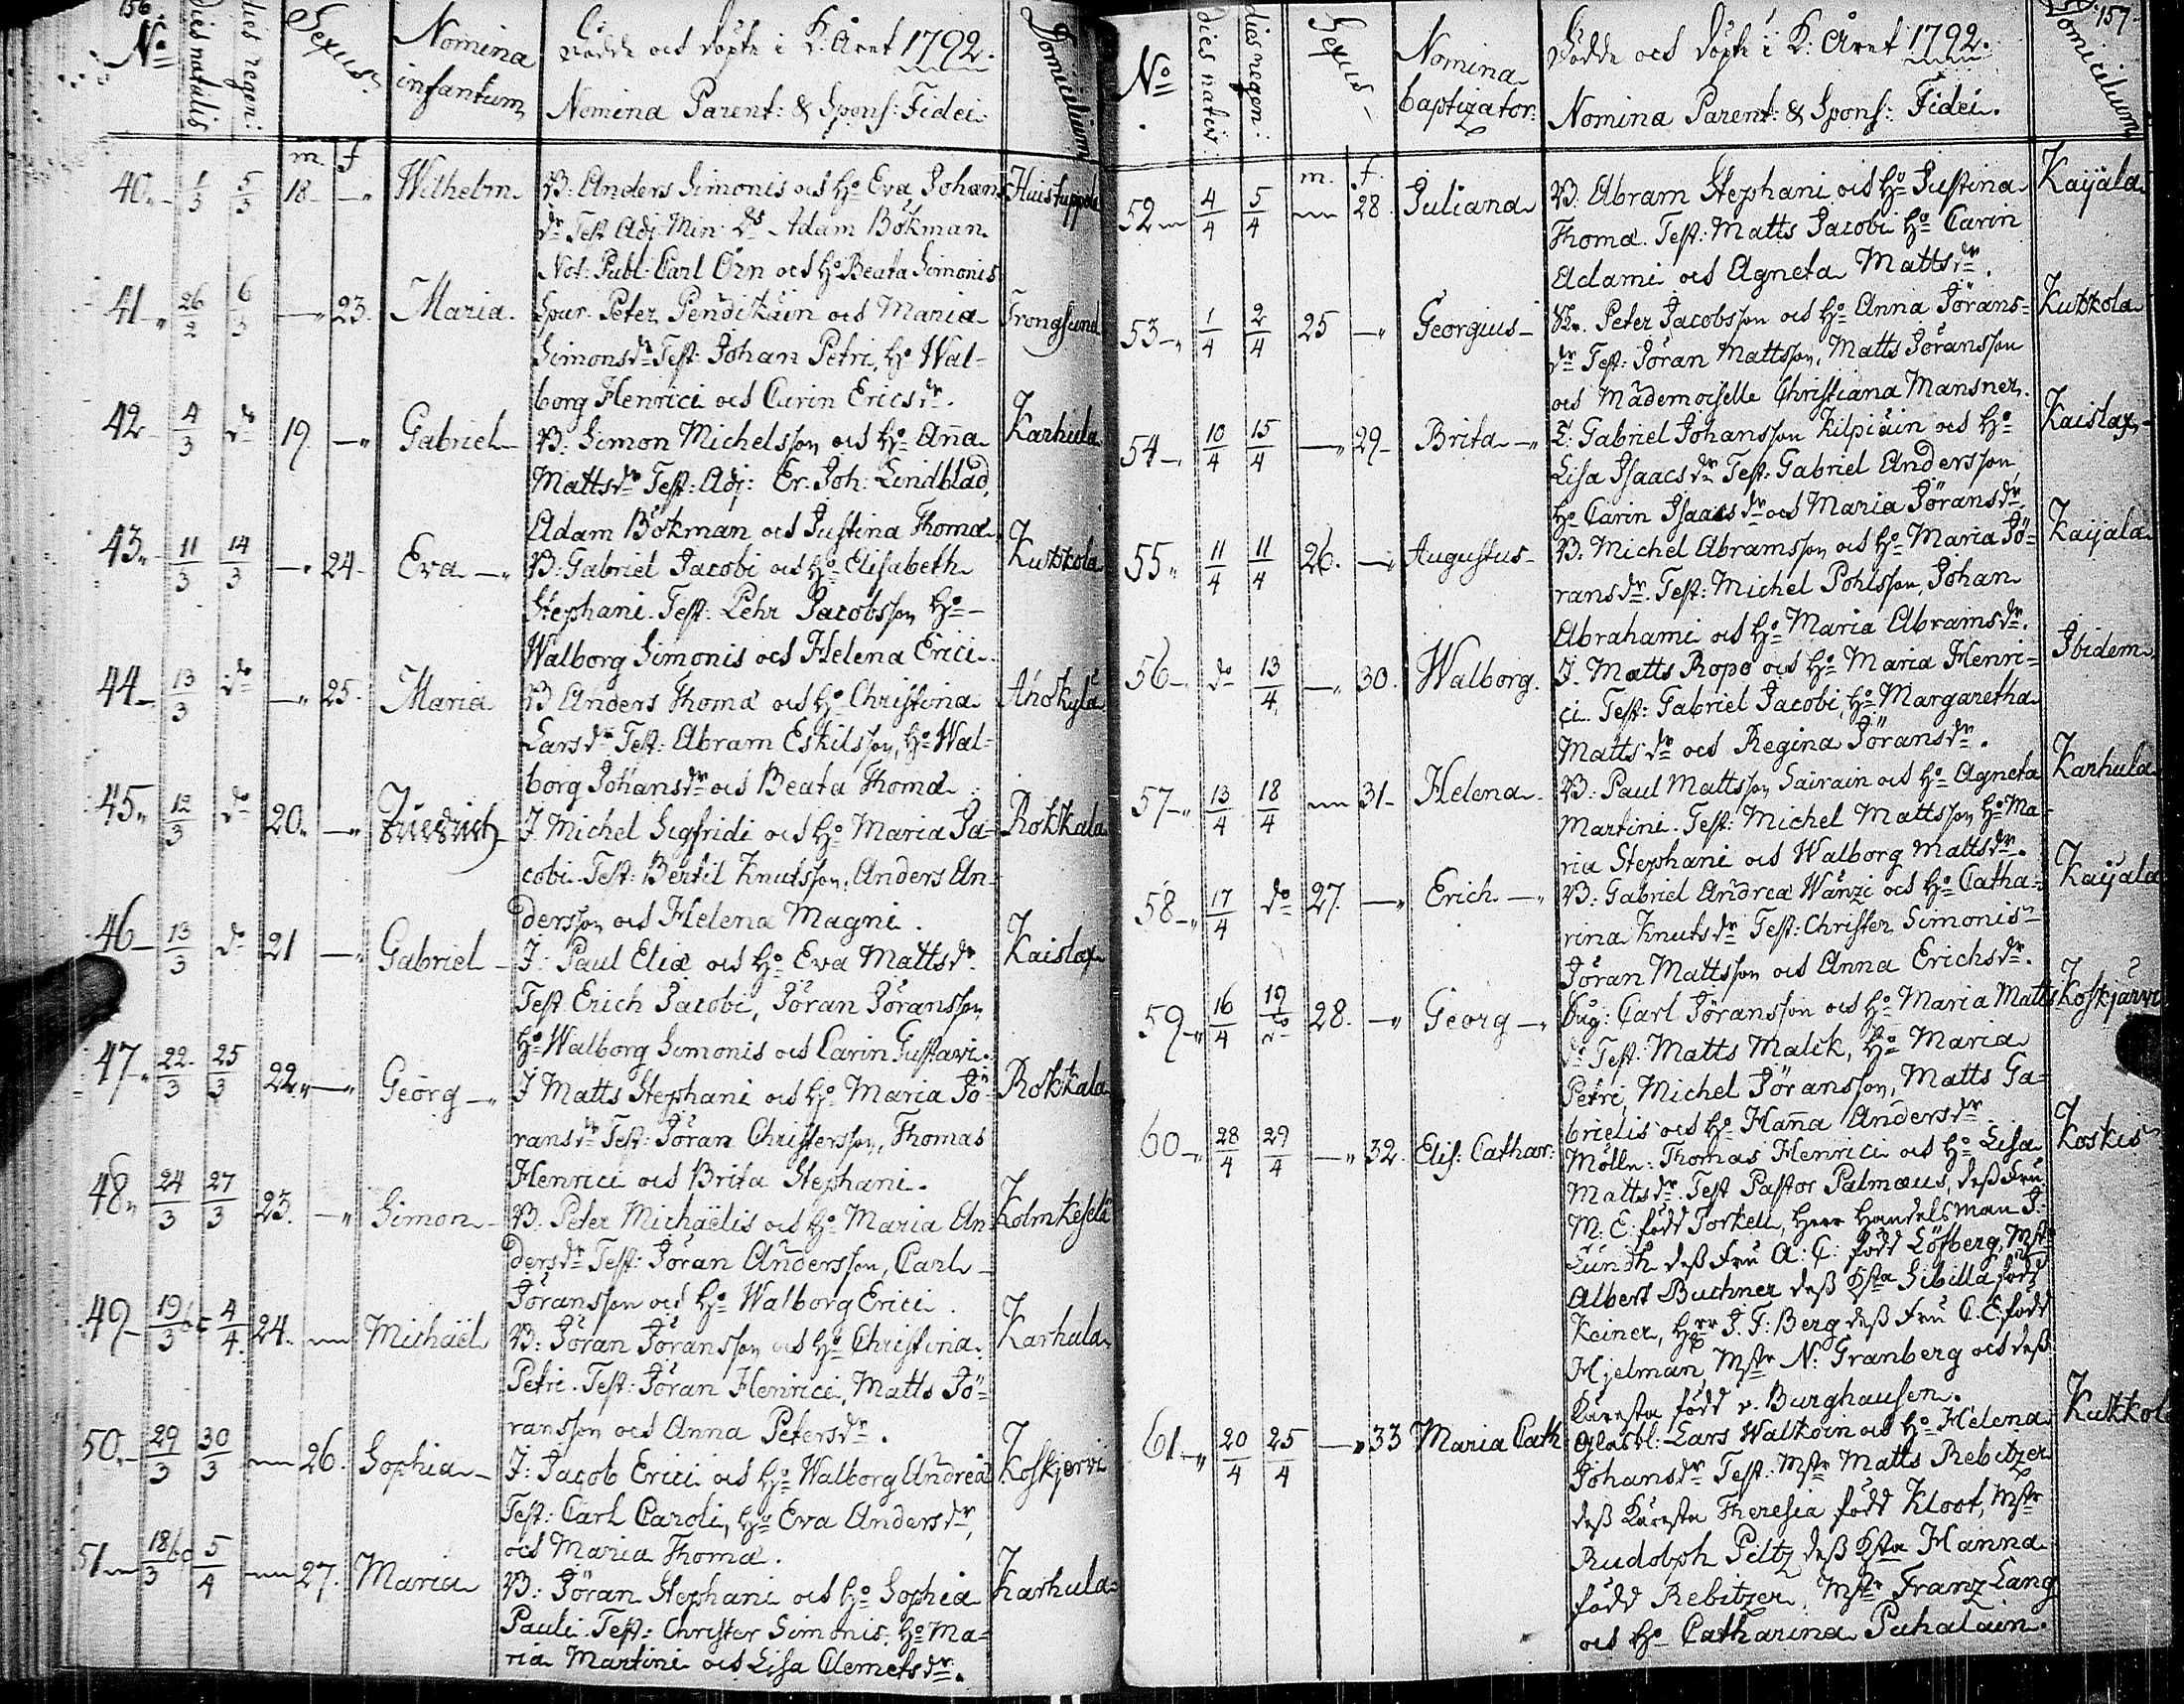 156.
No
Dies natalis
dies regen:
Sexus
Nomina infantum
Födde och döpte i K: Året 1792.
Nomina Parent: & Spons: Fidei.
Domicilium
m. f
40. 1/3 5/3 18 — Wilhelm B: Anders Simonis och Ho Eva Johans
dr Test Adj. Min: Adam Bökman
Not: Publ: Carl Örn och Ho Beata Simonis
41 26/2 6/3 — 23. Maria. Spur. Peter Pendikäin och Maria Trongsund
Simonsdr Test: Johan Petri, Ho Wal-
borg Henrici och Carin Ericsdr.
42 4/3 do 19. — Gabriel B. Simon Michelsson och Ho Anna Karhula
Mattsdr Test: Adj: Er. Joh: Lindblad,
Adam Bökman och Justina Thomæ.
43. 11/3 14/3 — 24 Eva B: Gabriel Jacobi och Ho Elisabeth Kukkola
Stephani. Test: Pehr Jacobsson Ho
Walborg Simonis och Helena Erici.
44 13/3 do — 25. Maria B Anders Thomæ och Ho Christina Ahokylä
Larsdr Test: Abram Eskilsson, Ho Wal-
borg Johansdr och Beata Thomæ.
45. 12/3 do 20. — Friedrich I Michel Sigfridi och Ho Maria Ja- Rokkala
cobi. Test: Bertil Knutsson, Anders An-
dersson och Helena Magni.
46 13/3 do 21 — Gabriel I: Paul Eliæ och Ho Eva Mattsdr. Kaislax
Test Erich Jacobi, Jöran Jöransson
Ho Walborg Simonis och Carin Gustavi.
47 22/3 25/3 22. — Georg I Matts Stephani och Ho Maria Jö- Rokkala
ransdr Test: Jöran Christersson, Thomas
Henrici och Brita Stephani.
48. 24/3 27/3 23. — Simon B. Peter Michaëlis och Ho Maria An- Kolmkeselä
dersdr Test: Jöran Andersson, Carl
Jöransson och Ho Walborg Erici.
49 19/3 4/4 24. Michäel B: Jöran Jöransson och Ho Christina Karhula
Petri. Test: Jöran Henrici, Matts Jö-
ransson och Anna Petersdr.
50. 29/3 30/3 26. Sophia I: Jacob Erici och Ho Walborg Andreæ Koskjervi
Test: Carl Caroli, Ho Eva Andersdr,
och Maria Thomæ.
51 18/3 5/4 27. Maria B: Jöran Stephani och Ho Sophia Karhula
Pauli. Test: Christer Simonis, Ho Ma-
ria Martini och Lisa Clemetsdr.
157.
No
dies nativ:
dies regen:
Sexus
Nomina baptizator:
Födde och döpte i K: Året 1792.
Nomina Parent: & Spons: Fidei.
Domicilium
m. f.
52 4/4 5/4 28. Juliana B. Abram Stephani och Ho Justina Kaijala
Thomæ. Test: Matts Jacobi Ho Carin
Adami och Agneta Mattsdr.
53 1/4 2/4 25 — Georgius Peter Jacobsson och Ho Anna Jörans- Kukkola
dr Test: Jöran Mattsson, Matts Jöransson
och Mademoiselle Christiana Mansner.
54 10/4 15/4 — 29 Brita Gabriel Johansson Kilpiäin och Ho Kaislax
Lisa Isaacsdr Test: Gabriel Andersson,
Ho Carin Isaacsdr och Maria Jöransdr.
55 11/4 11/4 26. — Augustus B. Michel Abramsson och Ho Maria Jö- Kaijala
ransdr. Test: Michel Pohlsson, Johan
Abrahami och Ho Maria Abramsdr.
56 do 13/4 — 30. Walborg. I. Matts Ropo och Ho Maria Henri- Ibidem
ci. Test: Gabriel Jacobi, Ho Margaretha
Mattsdr och Regina Jöransdr.
57 13/4 18/4 31 Helena B: Paul Mattsson Sairain och Ho Agneta Karhula
Martini. Test: Michel Mattsson Ho Ma-
ria Stephani och Walborg Mattsdr.
58 17/4 do 27. — Erich B: Gabriel Andreæ Wänzi och Ho Catha- Kaijala
rina Knutsdr Test: Christer Simonis
Jöran Mattsson och Anna Erichsdr.
59 16/4 19 do 28. — Georg Carl Jöransson och Ho Maria Matts Koskjärvi
dr Test: Matts Malck, Ho Maria
Petri, Michel Jöransson, Matts Ga-
brielis och Ho Hanna Andersdr
60 28/4 29/4 — 32. Elis: Cathar: Mölln: Thomas Henrici och Ho Lisa Koskis
Mattsdr. Test Pastor Palmæus, dess Fru
M. E. född Forkell, Herr Handelsman J.
Lundh dess Fru A: C: född Löfberg, Mstr
Albert Buchner dess Ksta Sibilla född
Keiner, Herr J. F: Berg dess Fru C. E. född
Hjelman, Mstr N: Granberg och dess
Käresta född v. Burghausen.
61 20/4 25/4 — 33 Maria Cath Glasbl: Lars Walkoin och Ho Helena Kukkol
Johansdr Test: Mstr Matts Rebitzer
dess Käresta Theresia född Kloot, Mstr
Rudolph Piltz dess Ksta Hanna
född Rebitzer, Mstr Franz Lang
och Ho Catharina Puhalain.